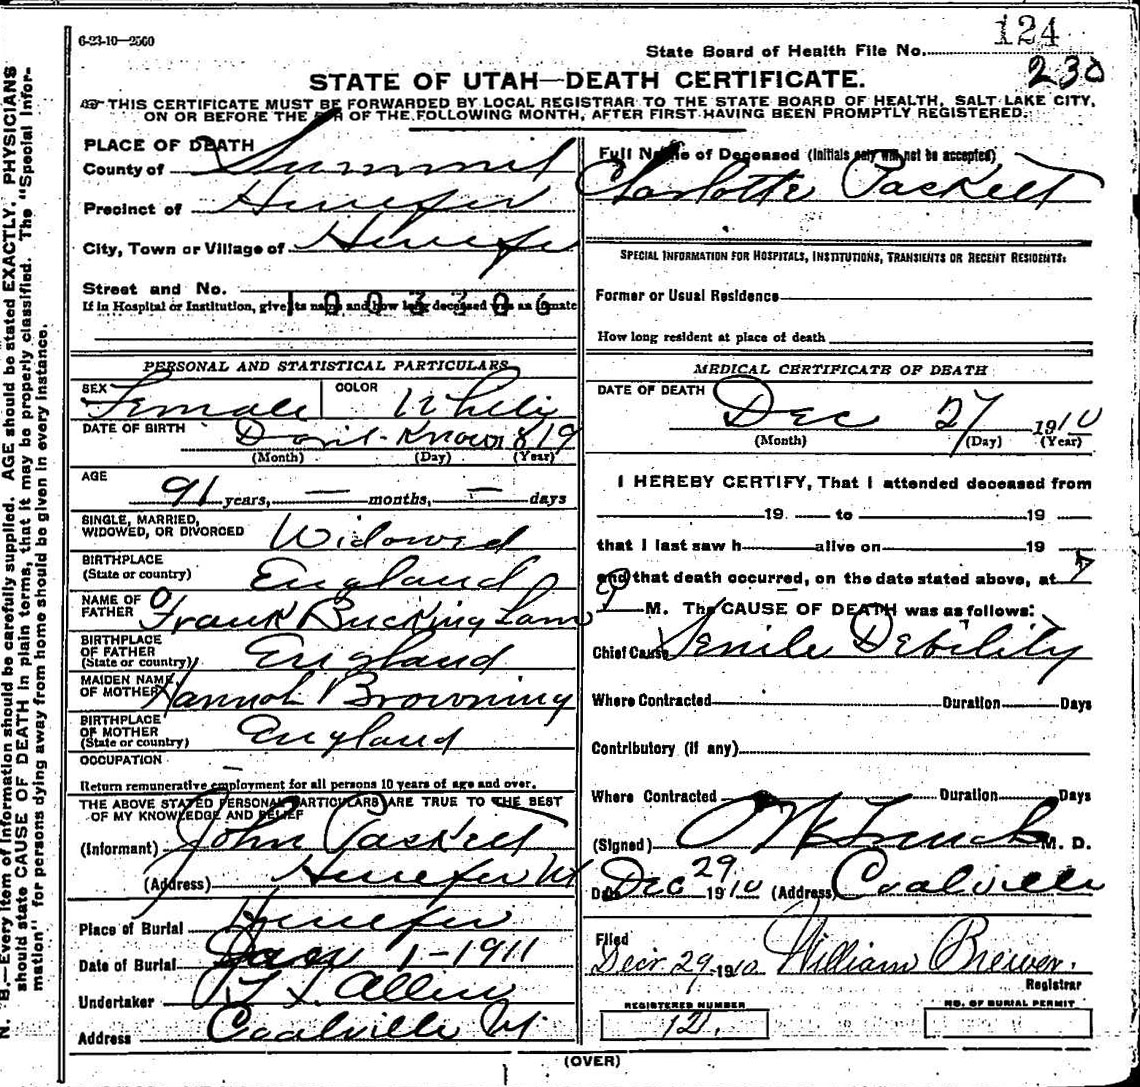 6-23-10—2500
State Board of Health File No. 124
230
STATE OF UTAH—DEATH CERTIFICATE.
THIS CERTIFICATE MUST BE FORWARDED BY LOCAL REGISTRAR TO THE STATE BOARD OF HEALTH, SALT LAKE CITY,
ON OR BEFORE THE OF THE FOLLOWING MONTH, AFTER FIRST HAVING BEEN PROMPTLY REGISTERED.
PLACE OF DEATH
County of Summit
Precinct of Henefer
City, Town or Village of Henefer
Street and No.
If in Hospital or Institution, give its name and how long deceased was an inmate
1003306
PERSONAL AND STATISTICAL PARTICULARS
SEX Female COLOR White
DATE OF BIRTH Dont Know 1819
(Month) (Day) (Year)
AGE
91 years, — months, — days
SINGLE, MARRIED,
WIDOWED, OR DIVORCED Widowed
BIRTHPLACE
(State or country) England
NAME OF
FATHER Frank Bucking Lam
BIRTHPLACE
OF FATHER
(State or country) England
MAIDEN NAME
OF MOTHER Hannah Browning
BIRTHPLACE
OF MOTHER
(State or country) England
OCCUPATION —
Return remunerative employment for all persons 10 years of age and over.
THE ABOVE STATED PERSONAL PARTICULARS ARE TRUE TO THE BEST
OF MY KNOWLEDGE AND BELIEF
(Informant) John Paskett
(Address) Henefer Ut
Place of Burial Henefer
Date of Burial Jan 1-1911
Undertaker Allen
Address Coalville Ut
Full Name of Deceased (Initials only will not be accepted)
Charlotte Paskett
SPECIAL INFORMATION FOR HOSPITALS, INSTITUTIONS, TRANSIENTS OR RECENT RESIDENTS:
Former or Usual Residence
How long resident at place of death
MEDICAL CERTIFICATE OF DEATH
DATE OF DEATH
Dec 27 1910
(Month) (Day) (Year)
I HEREBY CERTIFY, That I attended deceased from
19 to 19
that I last saw h alive on 19
and that death occurred, on the date stated above, at 7
P M. The CAUSE OF DEATH was as follows:
Chief Cause Senile Debility
Where Contracted Duration Days
Contributory (if any)
Where Contracted Duration Days
(Signed) M. D.
Date Dec 29 1910 (Address) Coalville
Filed
Decr 29 1910 William Brewer.
Registrar
REGISTERED NUMBER
12.
NO. OF BURIAL PERMIT
(OVER)
N. B.—Every item of information should be carefully supplied. AGE should be stated EXACTLY. PHYSICIANS
should state CAUSE OF DEATH in plain terms, that it may be properly classified. The "Special Infor-
mation" for persons dying away from home should be given in every instance.